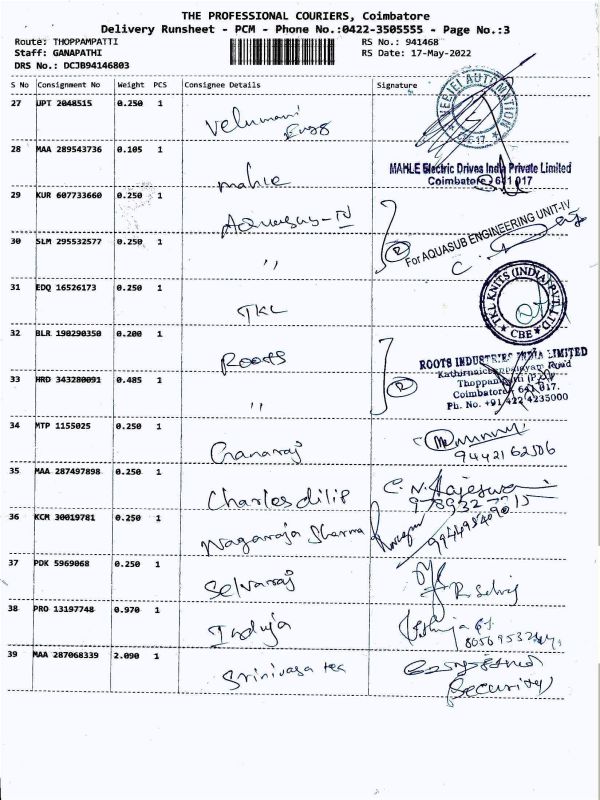 THE PROFESSIONAL COURIERS, Coimbatore
Delivery Runsheet - PCM - Phone No.:0422-3505555 - Page No.:3
Route: THOPPAMPATTI
RS No.: 941468
Staff: GANAPATHI
RS Date: 17-May-2022
DRS No.: DCJB94146803
S No Consignment No Weight PCS Consignee Details Signature
27 UPT 2048515 0.250 1 Velumani Engg
28 MAA 289543736 0.105 1 mahle
MAHLE Electric Drives India Private Limited
Coimbatore 641 017
29 KUR 607733660 0.250 1 Aquasub-IV
For AQUASUB ENGINEERING UNIT-IV
30 SLM 295532577 0.250 1 ''
31 EDQ 16526173 0.250 1 TKL
TKL KNITS (INDIA) PVT. LTD
CBE
32 BLR 190290350 0.200 1 Roots
ROOTS INDUSTRIES INDIA LIMITED
Thoppampatti
Coimbatore - 641 017.
Ph. No. +91 422 4235000
33 HRD 343280091 0.485 1 ''
34 MTP 1155025 0.250 1 Gnanaraj
35 MAA 287497898 0.250 1 Charles dilip
C. N. Rajeswari
36 KCM 30019781 0.250 1 Nagaraja Sharma
37 PDK 5969068 0.250 1 Selvaraj
38 PRO 13197748 0.970 1 Induja
39 MAA 287068339 2.090 1 Srinivasa tea
Security